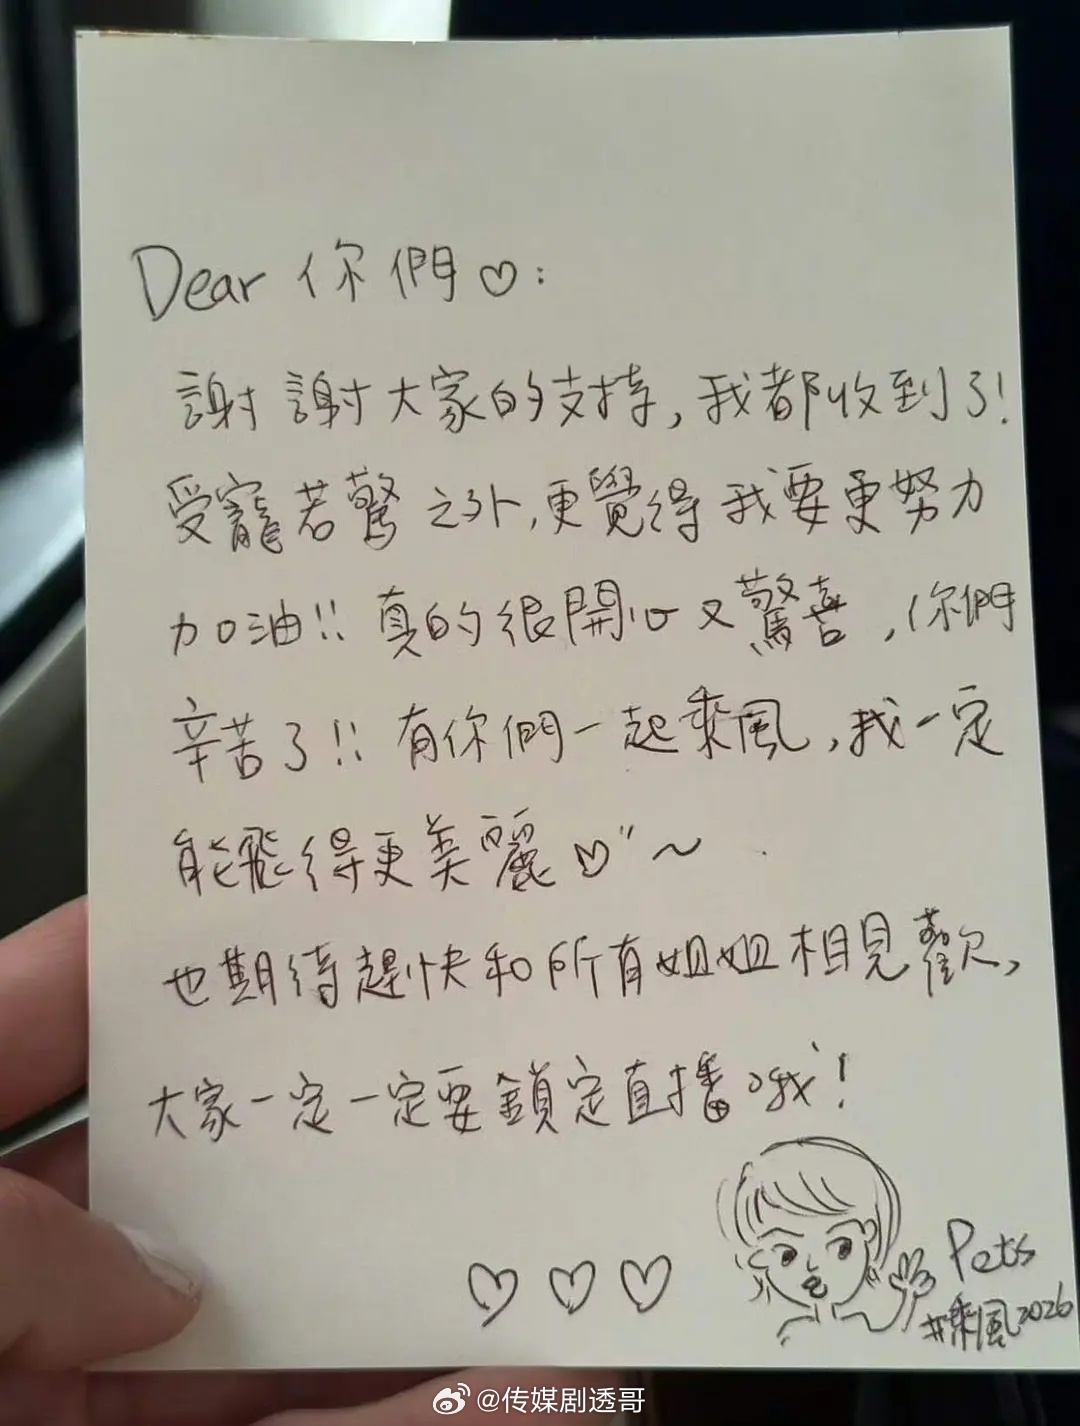 Dear 你們♡:
謝謝大家的支持,我都收到了!
受寵若驚之外,更覺得我要更努力
加油!! 真的很開心又驚喜,你們
辛苦了!! 有你們一起乘風,我一定
能飛得更美麗♡"~
也期待趕快和所有姐姐相見歡,
大家一定一定要鎖定直播哦!
♡♡♡
Pets
#乘風2026
@传媒剧透哥